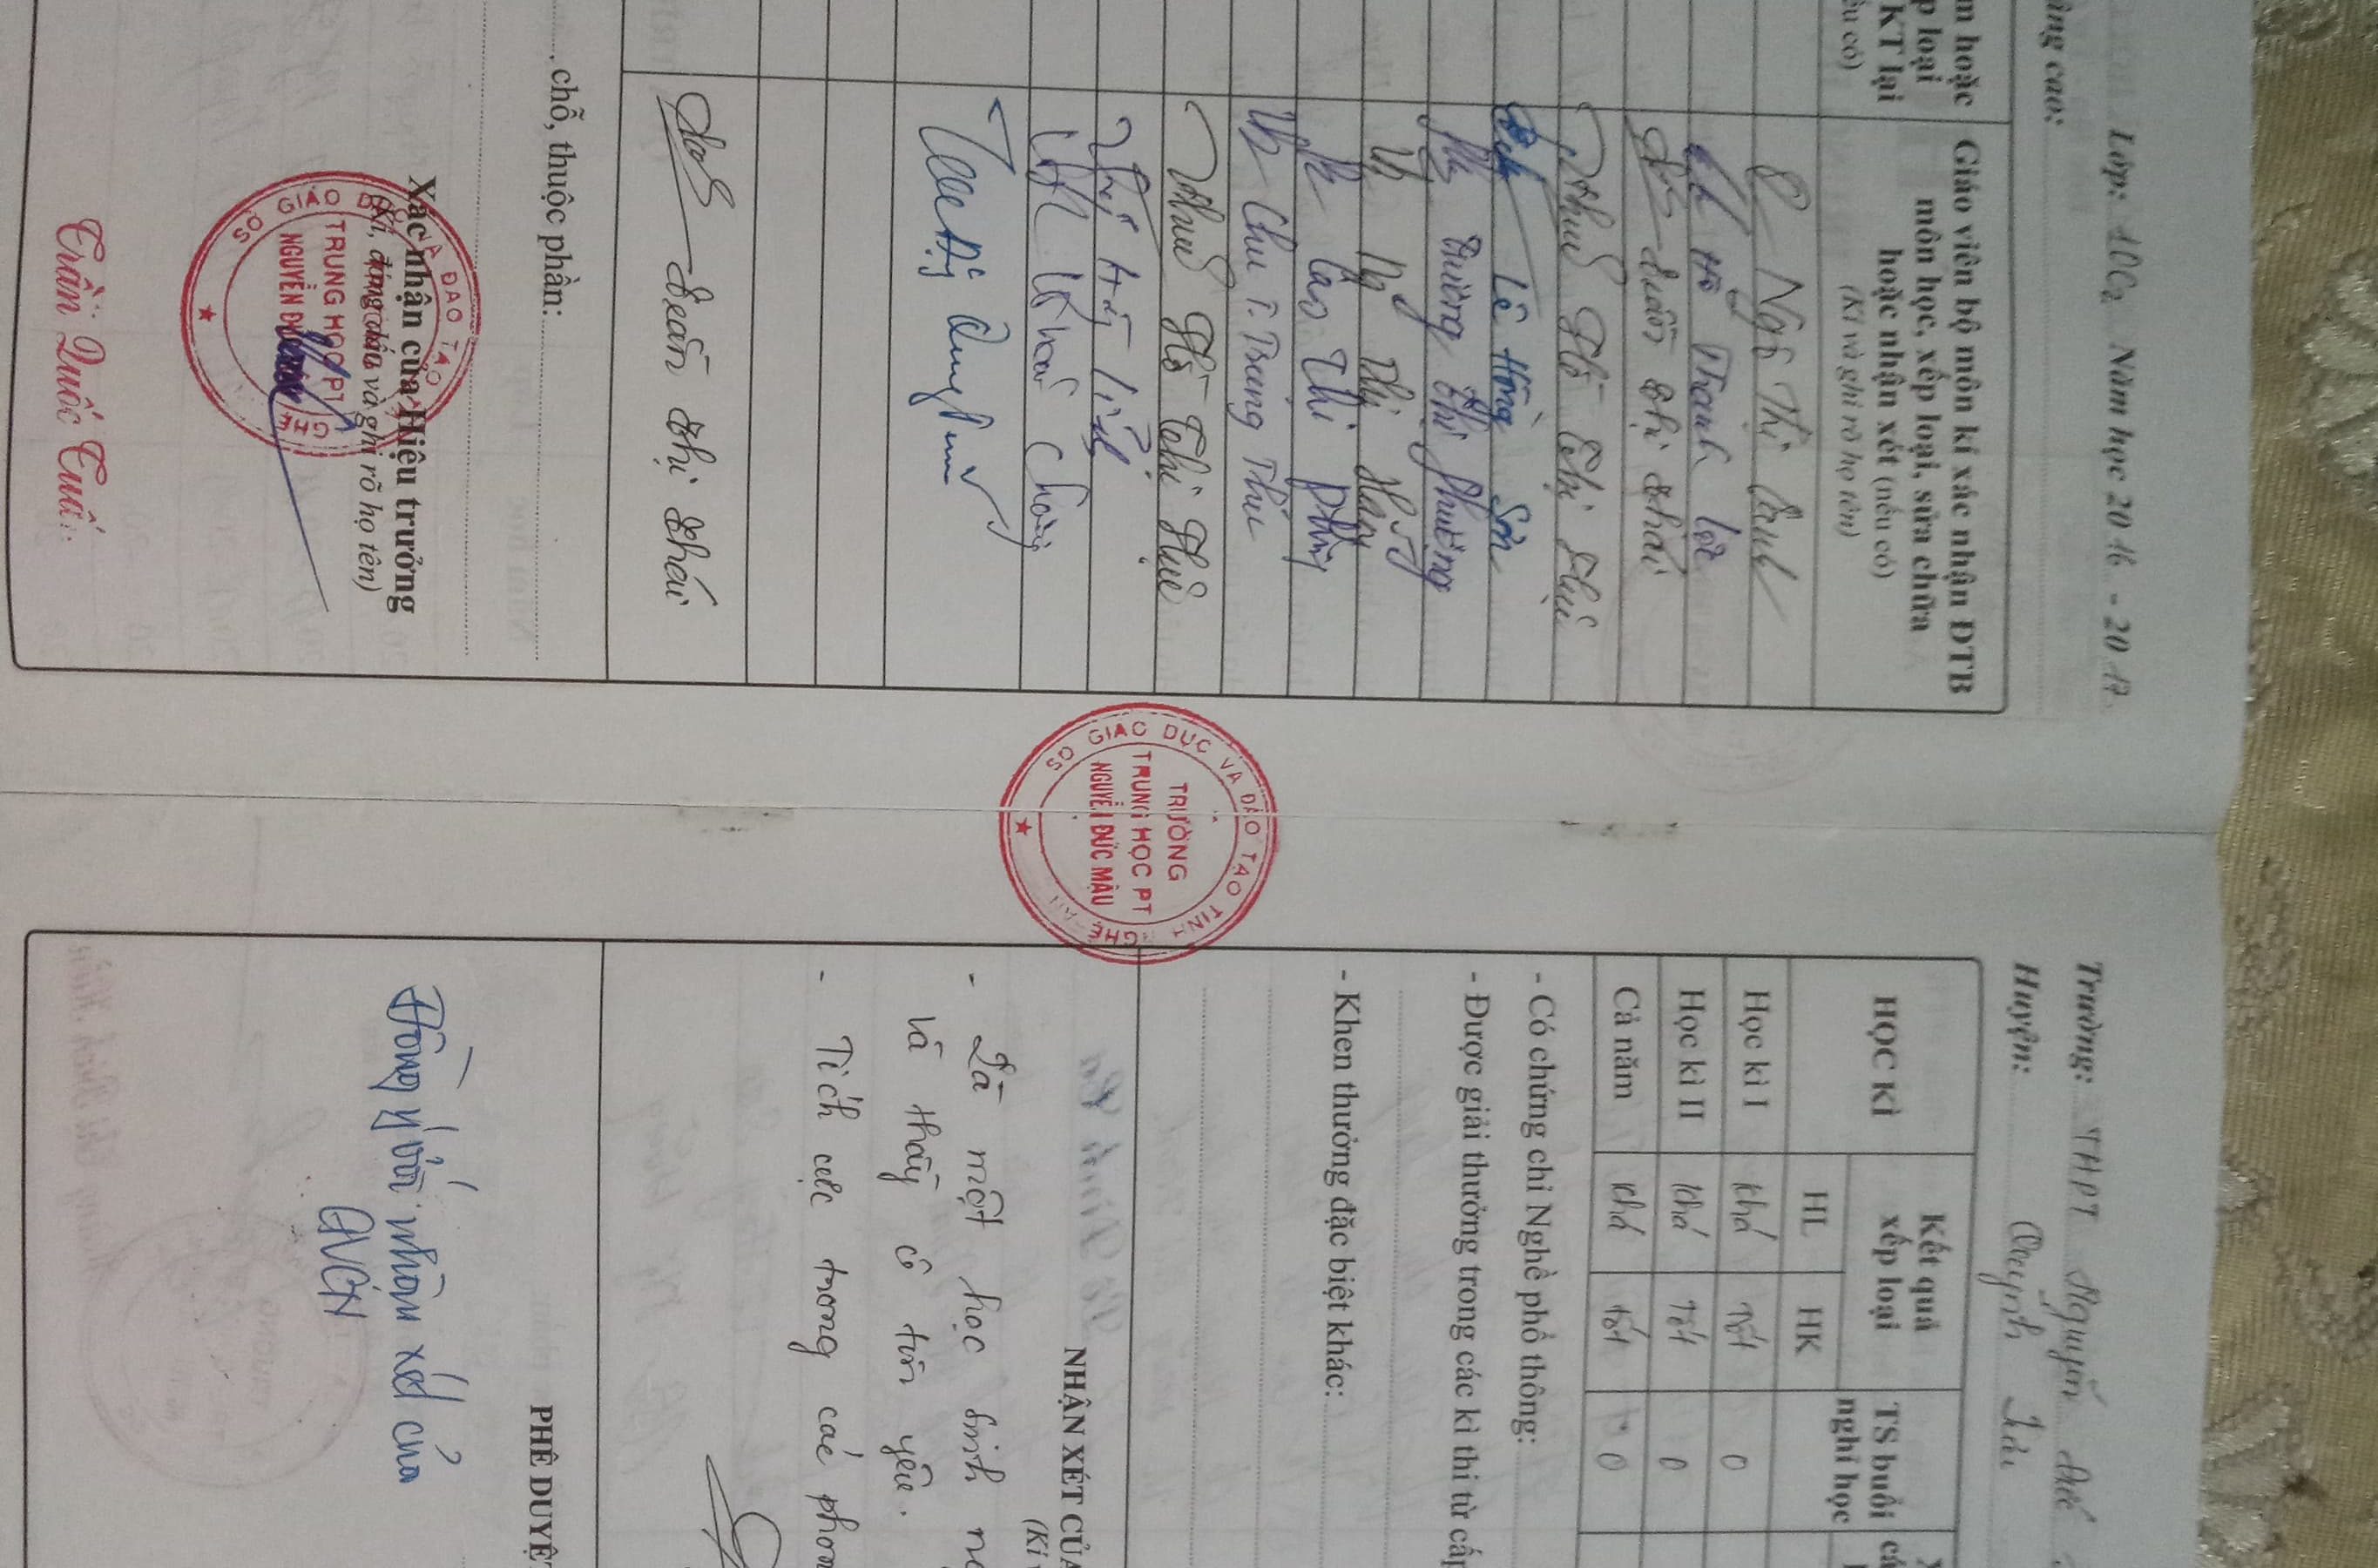 Lớp: 10C2 Năm học 2016 - 2017
âng cao:
m hoặc
p loại
KT lại
ếu có)
Giáo viên bộ môn kí xác nhận ĐTB
môn học, xếp loại, sửa chữa
hoặc nhận xét (nếu có)
(Kí và ghi rõ họ tên)
Ngô Thị
Hồ Thanh
Thị Khái
Hồ Thị Huệ
Lê Hồng Sơn
Trương Thị Phương
Thị Hằng
Cao Thị
Chu T. Trang Thu
Hồ Thị Huệ
Khoa
Thị Khái
chỗ, thuộc phần:
Xác nhận của Hiệu trưởng
(Kí, đóng dấu và ghi rõ họ tên)
SỞ GIÁO DỤC VÀ ĐÀO TẠO
TRUNG HỌC PT
NGUYỄN ĐỨC
Trần Quốc Tuấ
SỞ GIÁO DỤC VÀ ĐÀO TẠO TỈNH NGHỆ AN
TRƯỜNG
TRUNG HỌC PT
NGUYỄN ĐỨC MẬU
Trường: THPT Nguyễn Đức
Huyện: Quỳnh Lưu
HỌC KÌ
Kết quả
xếp loại
TS buổi
nghỉ học
HL HK
Học kì I Khá Tốt 0
Học kì II Khá Tốt 0
Cả năm Khá Tốt 0
- Có chứng chỉ Nghề phổ thông:
- Được giải thưởng trong các kì thi từ cấp
- Khen thưởng đặc biệt khác:
NHẬN XÉT CỦA
(Kí
- Là một học sinh
và thầy cô tin yêu.
- Tích cực trong các phon
PHÊ DUYỆT
Đồng ý với nhận xét của
GVCN